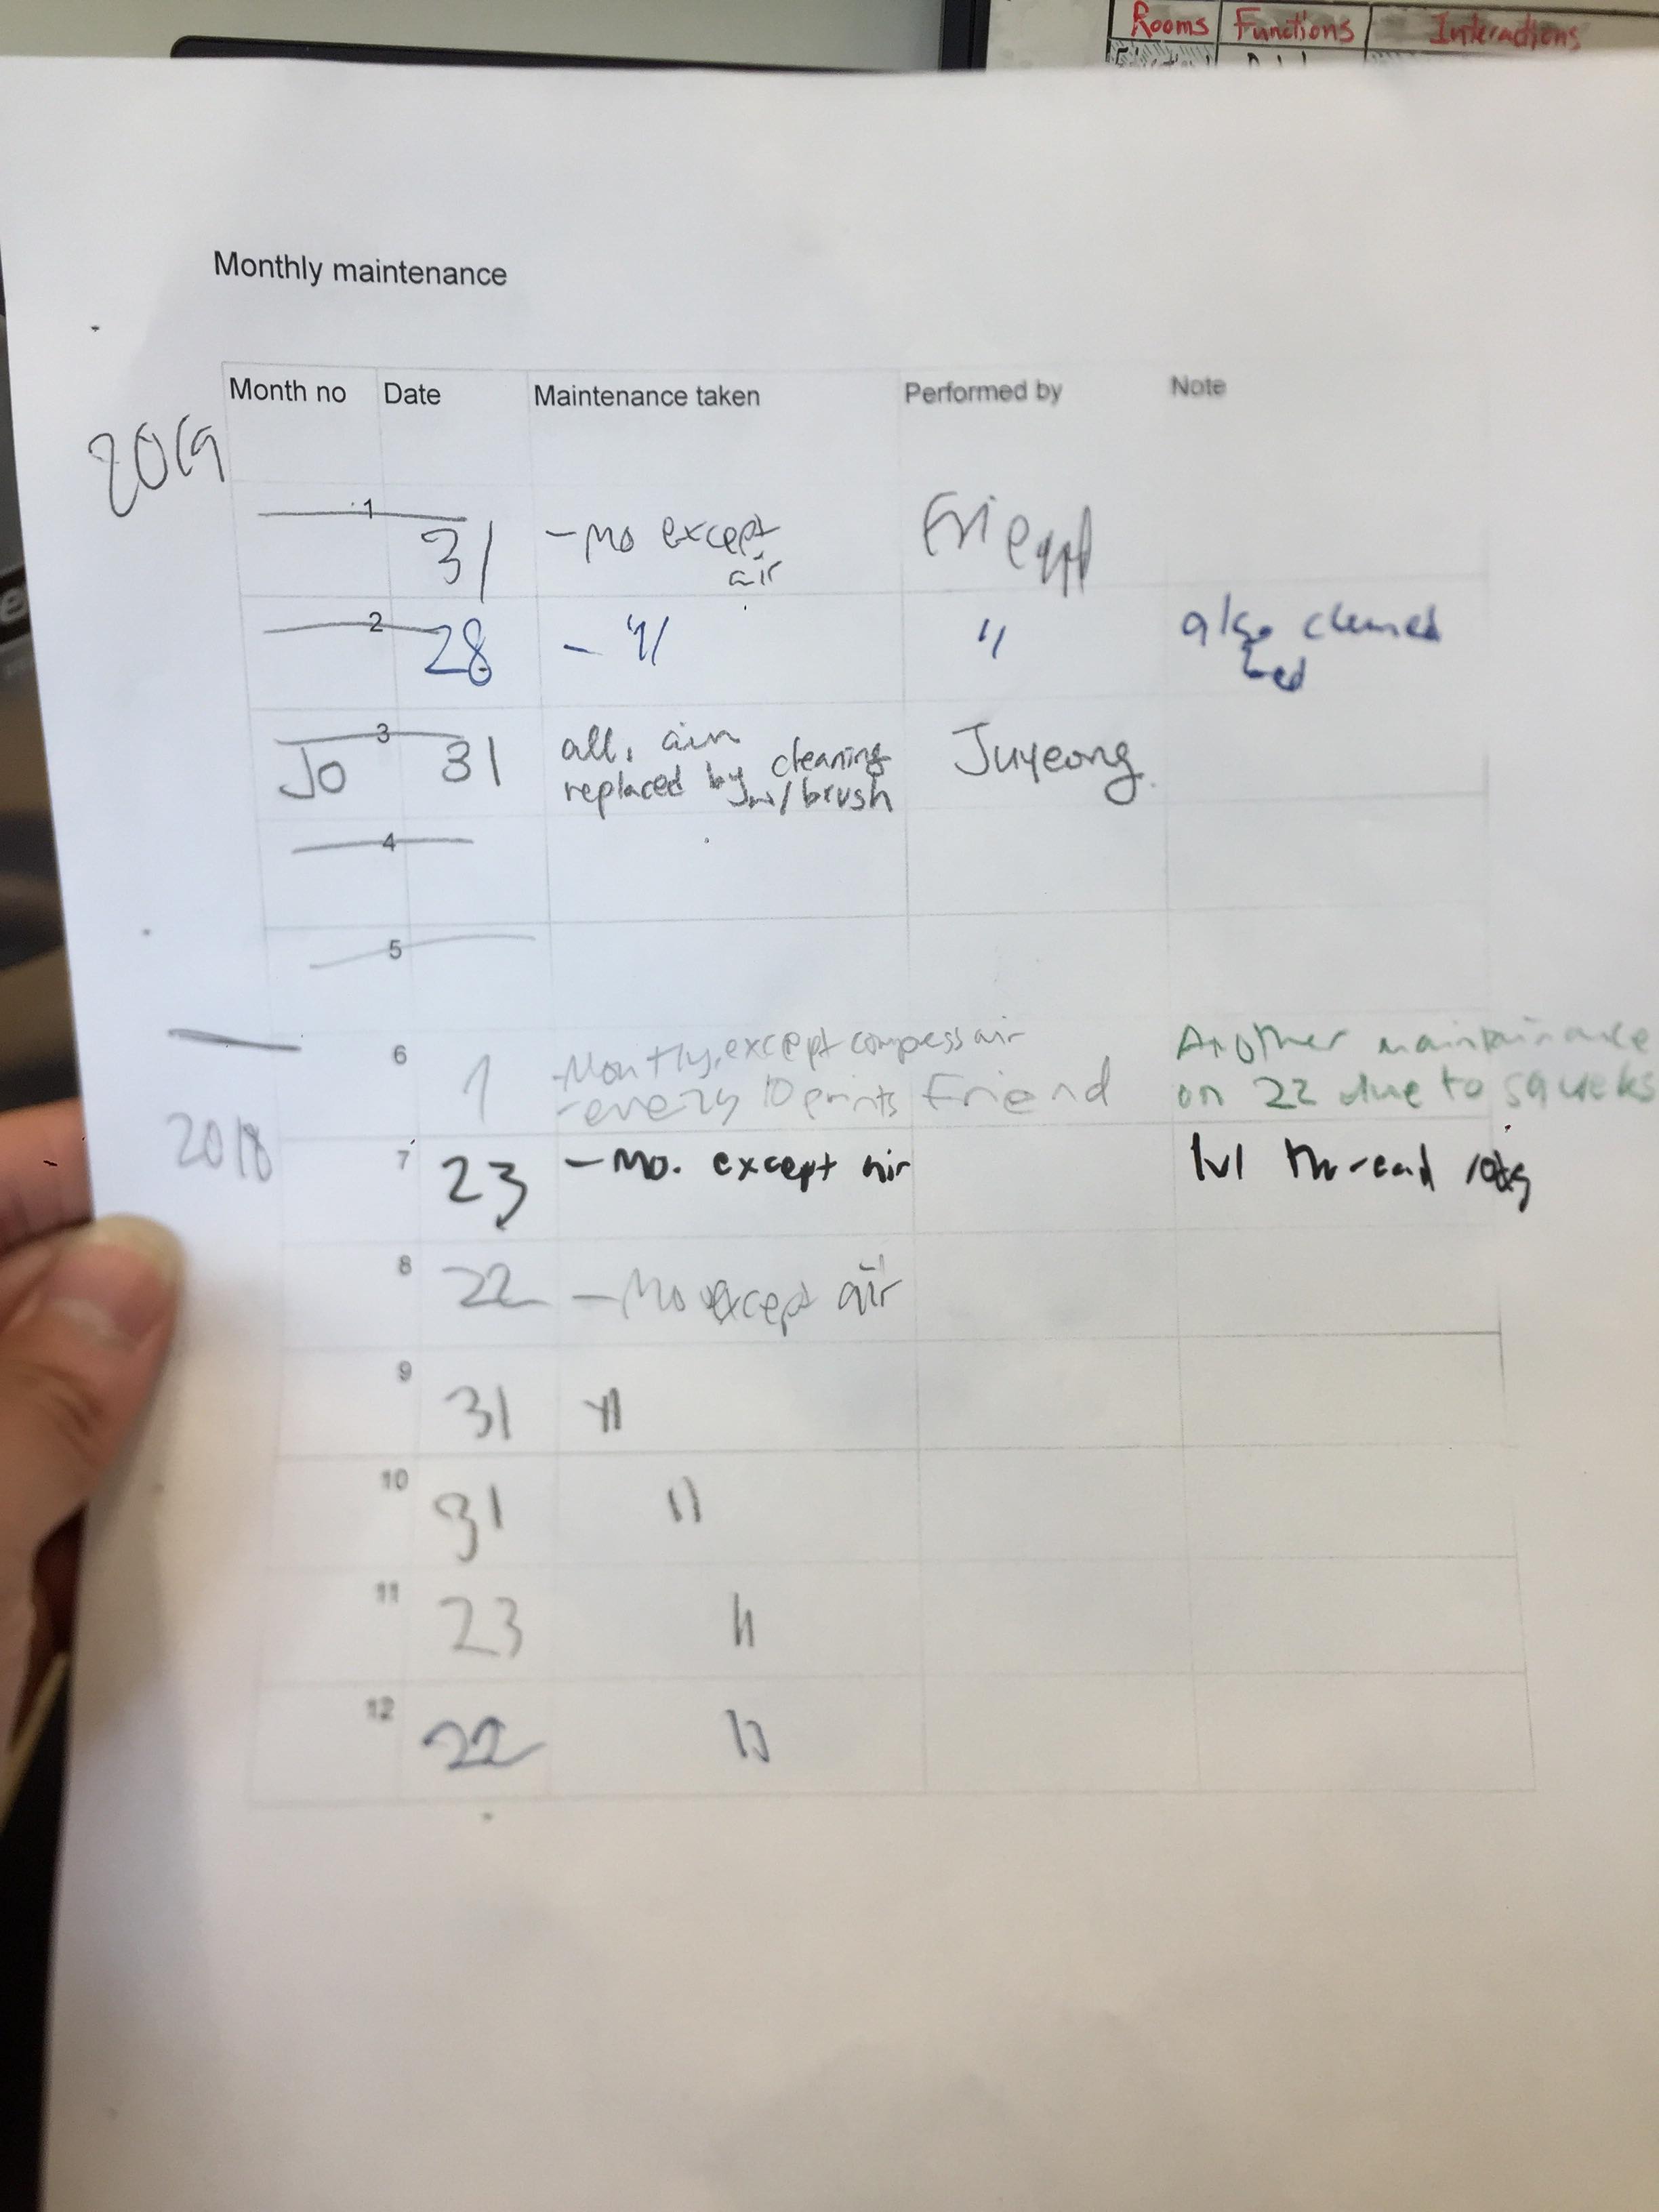 Rooms Functions Interactions
Monthly maintenance
Month no Date Maintenance taken Performed by Note
2019
1 31 - Mo except
air
2 28 - 〃 〃 also cleaned
bed
3 Jo 31 all, air cleaning
replaced by w/ brush Juyeong.
4
5
6 1 - Montly, except compress air
- every 10 prints Friend Another maintainance
on 22 due to squeks
2018
7 23 - Mo. except air lvl thread
8 22 - Mo except air
9 31 〃
10 31 〃
11 23 〃
12 22 〃